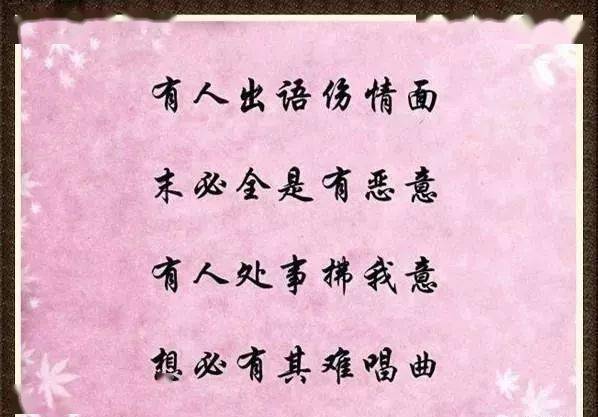 有人出语伤情面
未必全是有恶意
有人处事拂我意
想必有其难唱曲